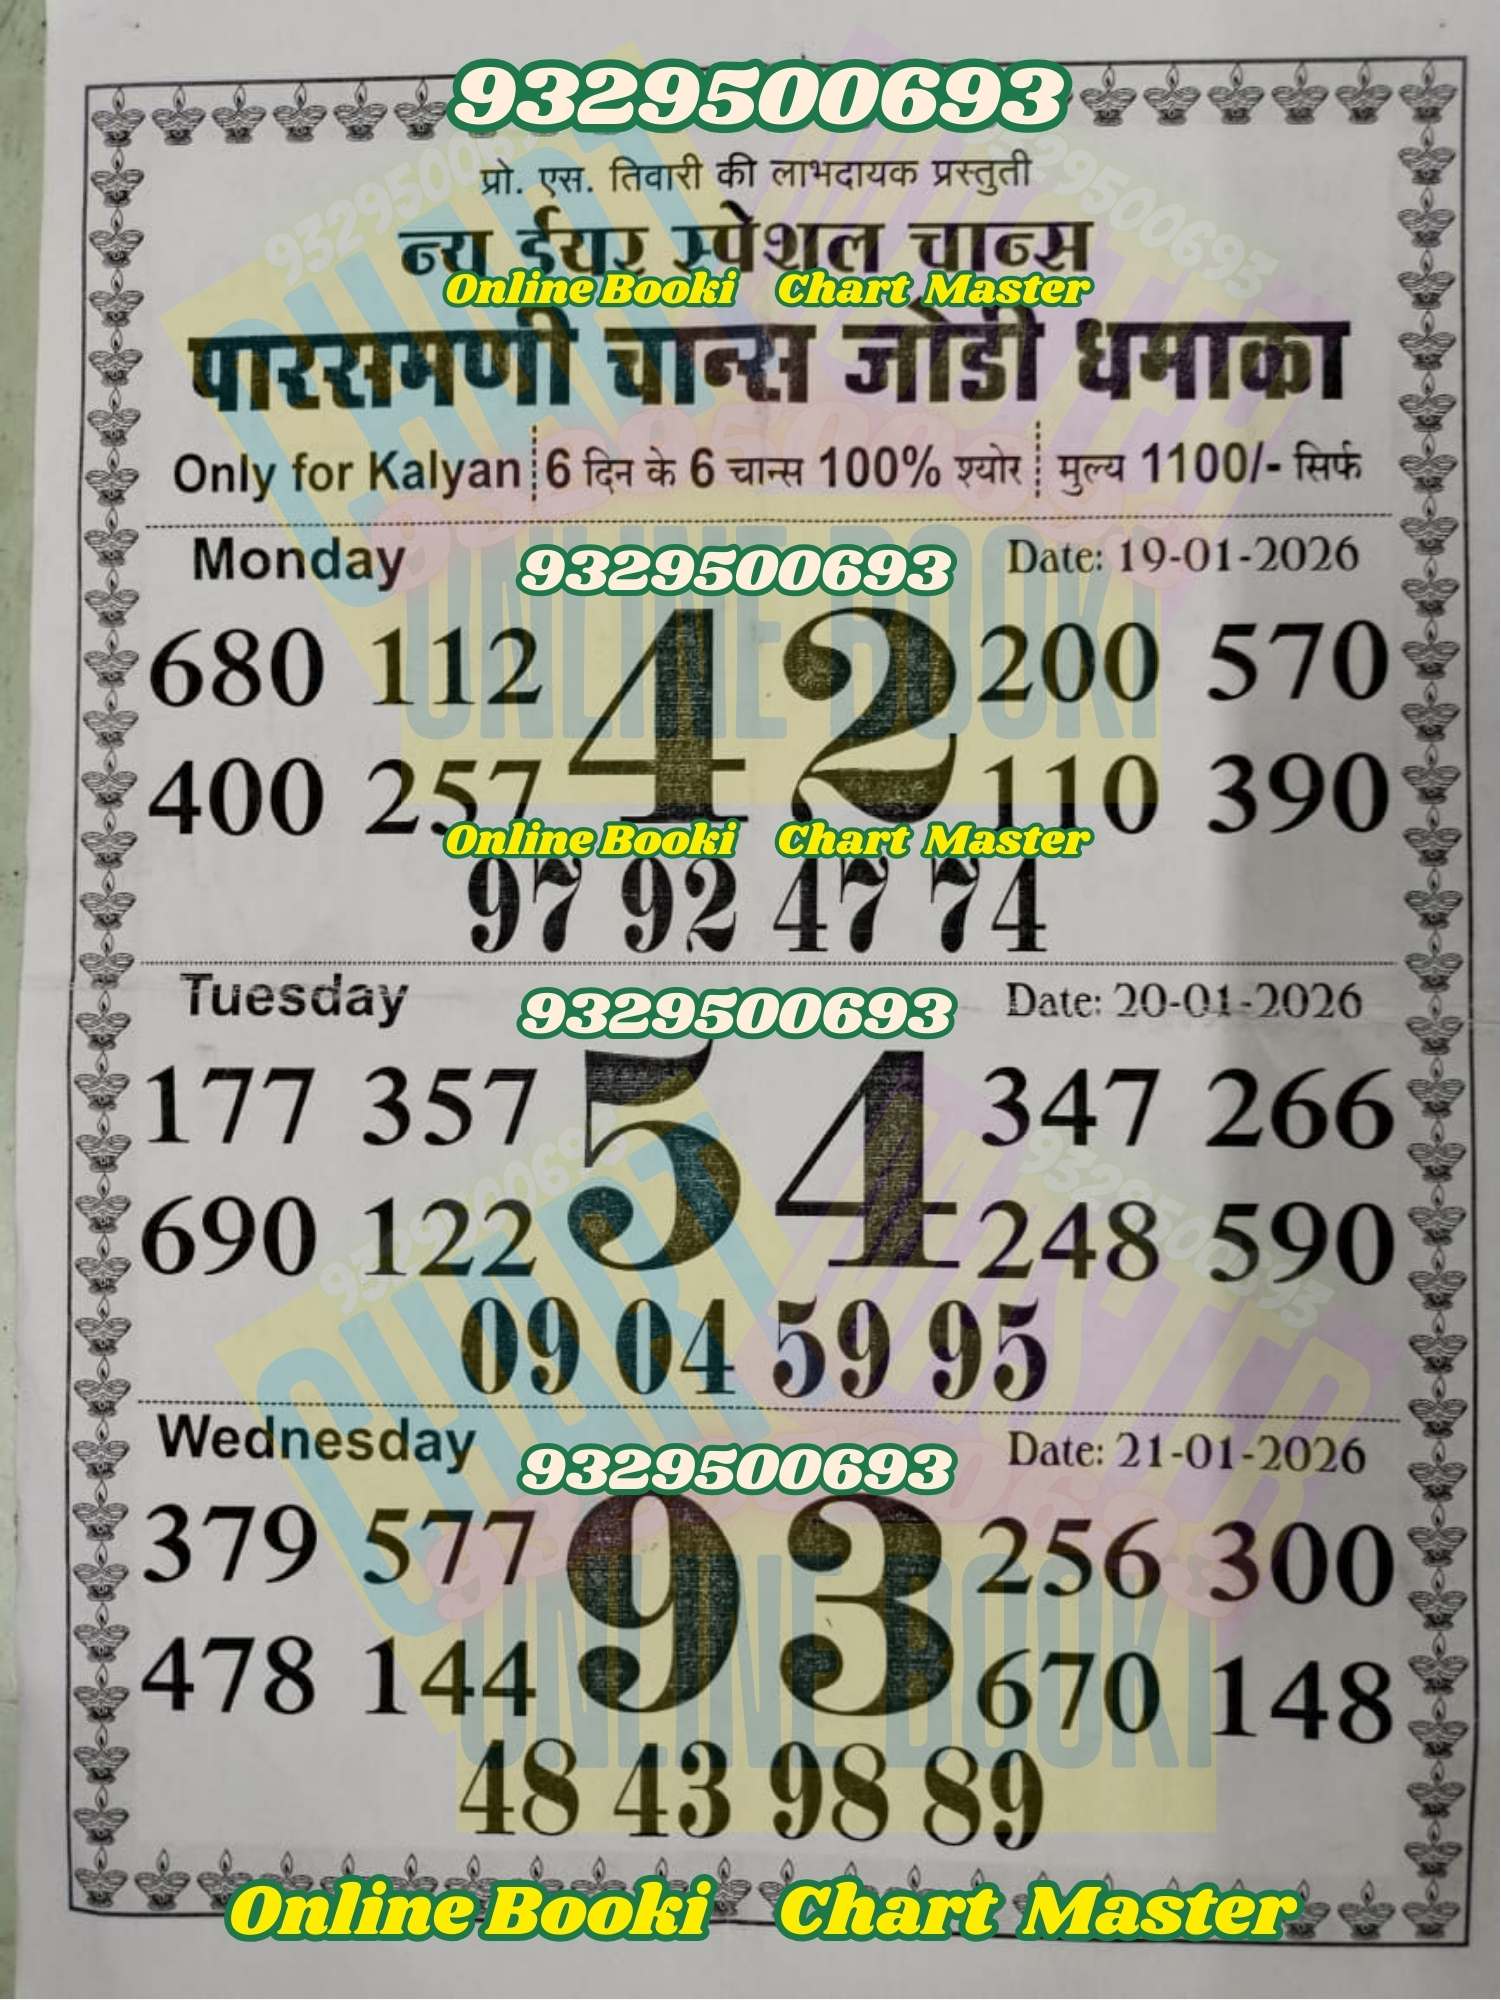 9329500693
प्रो. एस. तिवारी की लाभदायक प्रस्तुती
न्यु ईयर स्पेशल चान्स
Online Booki Chart Master
पारसमणी चान्स जोडी धमाका
Only for Kalyan 6 दिन के 6 चान्स 100% श्योर मुल्य 1100/- सिर्फ
Monday 9329500693 Date: 19-01-2026
680 112 42 200 570
400 257 110 390
Online Booki Chart Master
97 92 47 74
Tuesday 9329500693 Date: 20-01-2026
177 357 54 347 266
690 122 248 590
09 04 59 95
Wednesday 9329500693 Date: 21-01-2026
379 577 93 256 300
478 144 670 148
48 43 98 89
Online Booki Chart Master